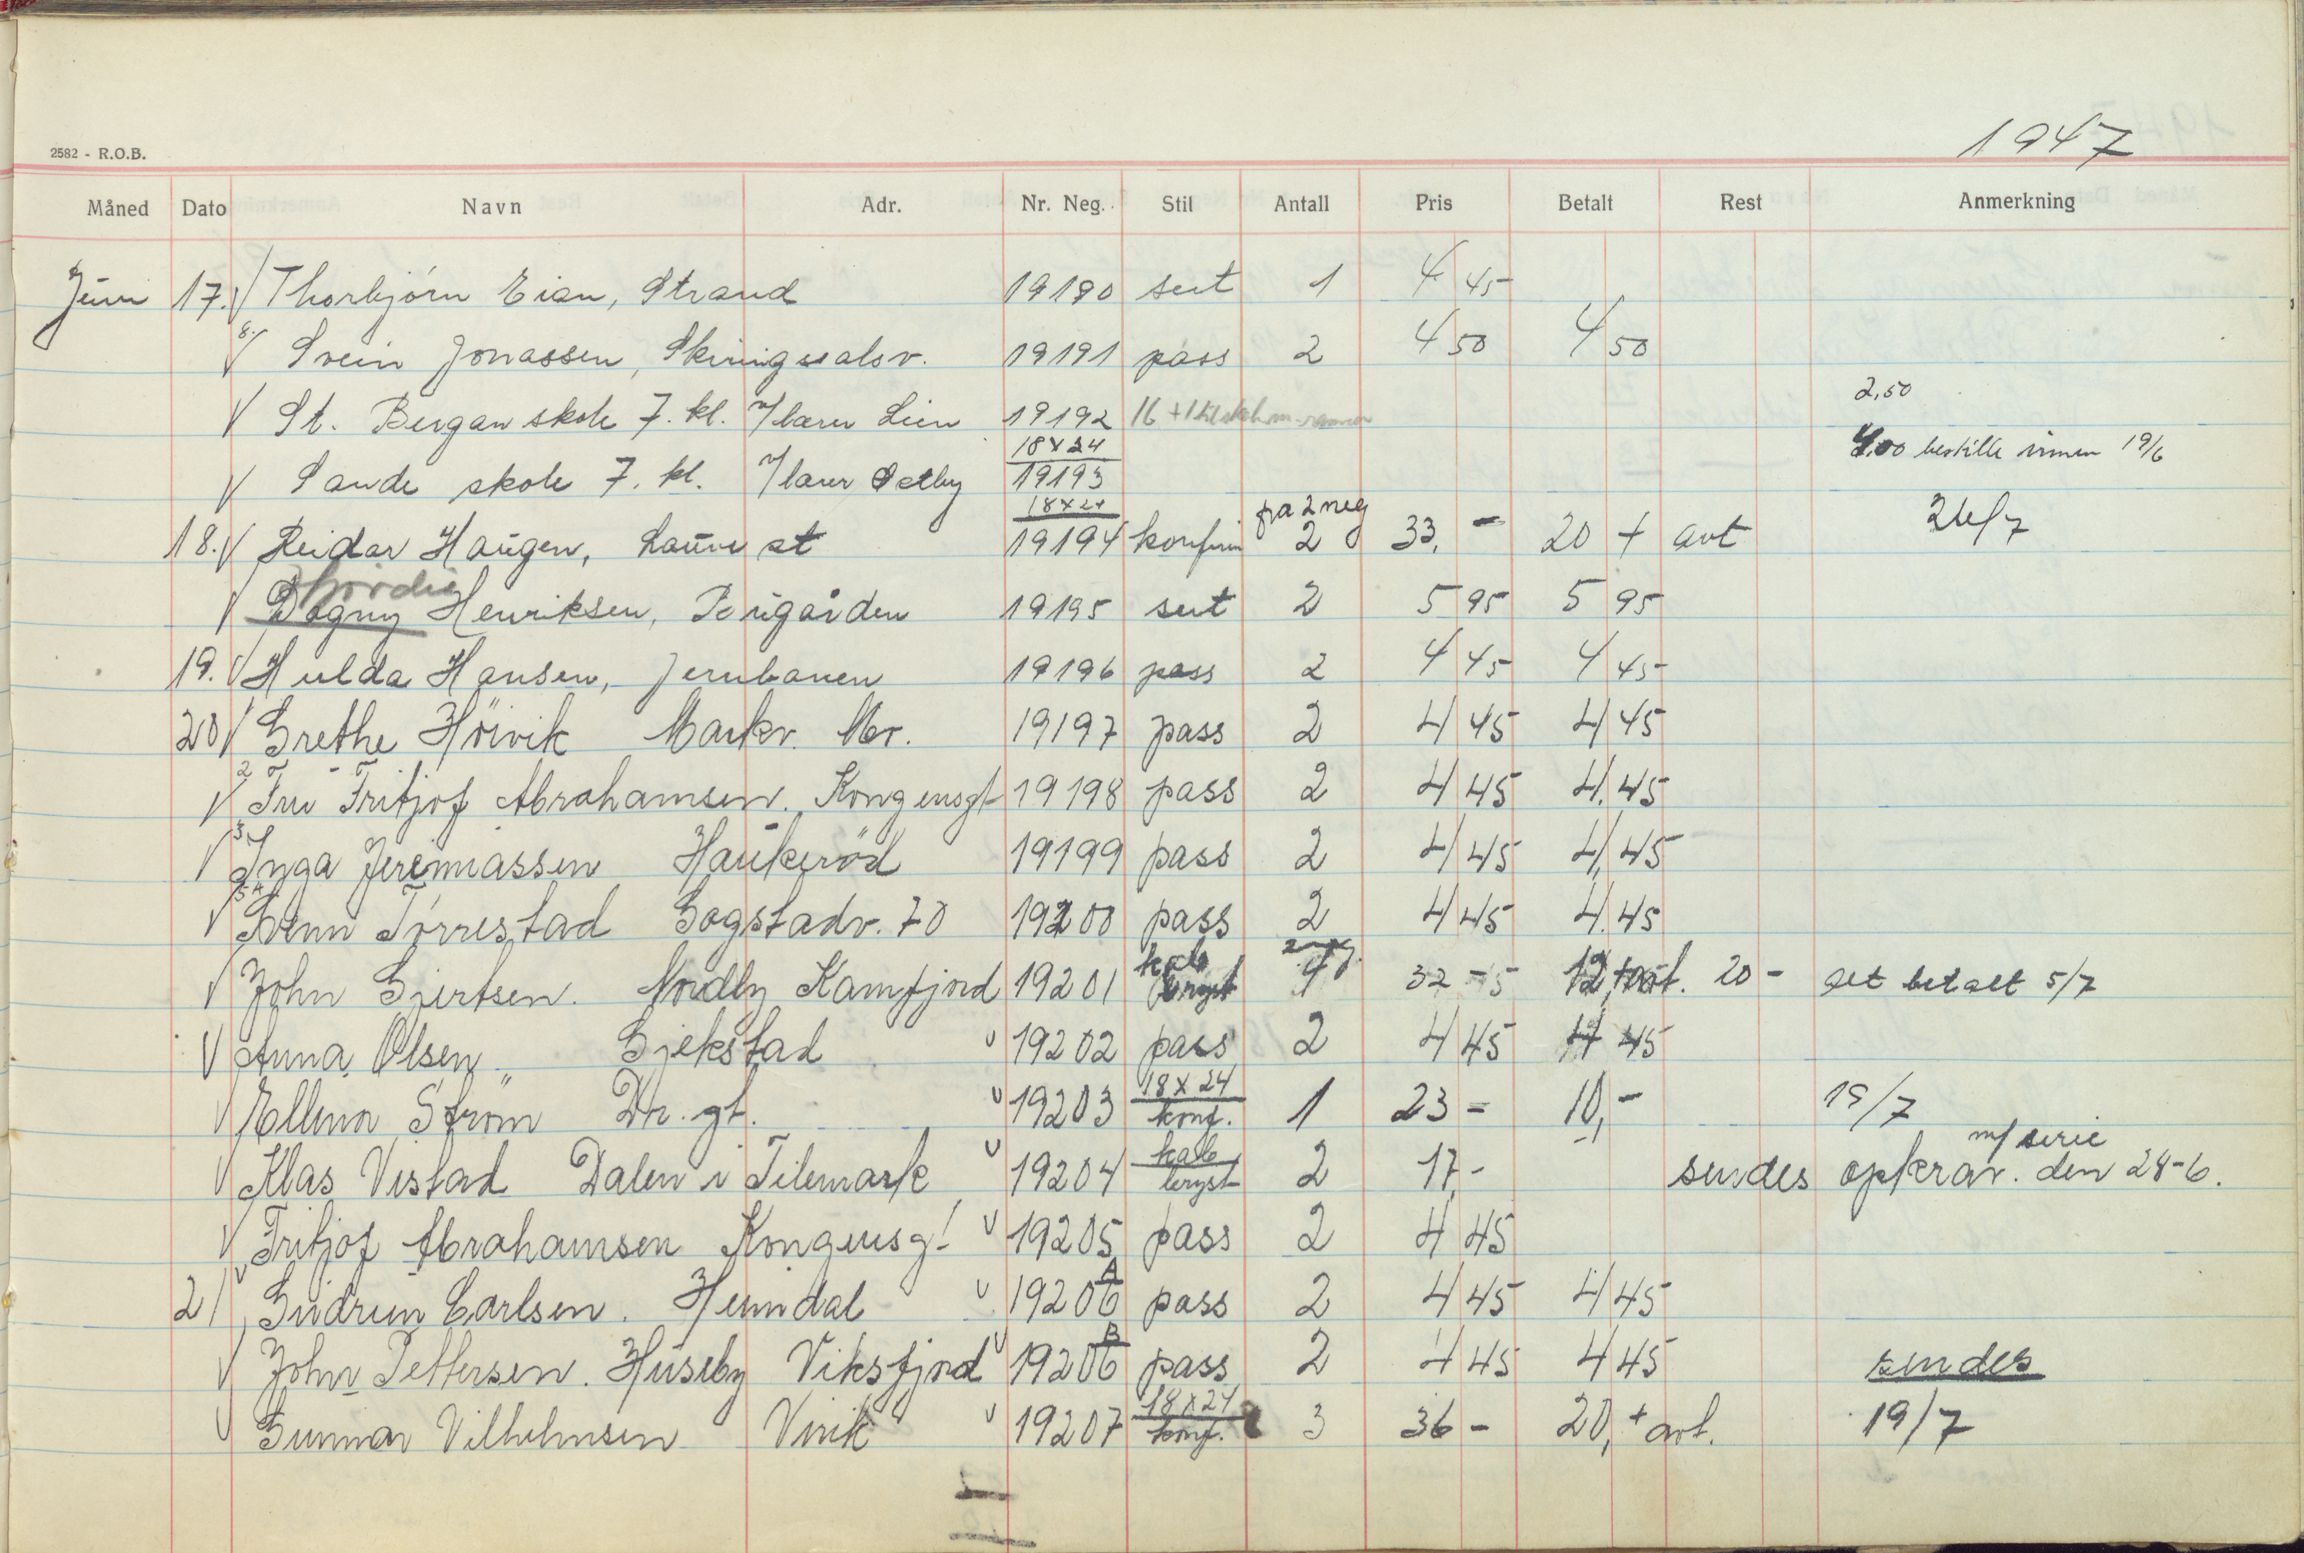 1947
2582 - R.O.B.
Måned Dato Navn Adr. Nr. Neg. Stil Antall Pris Betalt Rest Anmerkning
Juni 17. Thorbjórn Eian, Strand 19190 sert 1 4 45
8. Svein Jonassen, Skiringssalsv. 19191 pass 2 4 50 4 50
2,50
St. Bergan skole 7. kl. v/lærer Lien 19192 16 + 1 til
18 x 24
bestille innen 19/6
Sande skole 7. kl. v/lærer 19193
18 x 24
på 2 neg
18. Reidar Haugen, Lauve st 19194 konfirm 2 33, - 20 + avt 26/7
Thordis
Dagny Henriksen, Bugården 19195 sert 2 5 95 5 95
19. Hulda Hansen, Jernbanen 19196 pass 2 4 45 4 45
20 Grethe Höivik Markv. 19197 pass 2 4 45 4 45
2 Fru Fritjof Abrahamsen. Kongensgt 19198 pass 2 4 45 4. 45
3 Inga Jeremiassen Haukeröd 19199 pass 2 4 45 4, 45
Svenn Törrestad Gogstadv. 70 19200 pass 2 4 45 4. 45
kab 2 neg.
John Gjertsen. Nordby Kamfjord 19201 bryst 4 32 - 12, + avt. 20 - alt betalt 5/7
Anna Olsen Gjekstad 19202 pass 2 4 45 4 45
18 x 24
Ellina Ström Dr. gt. 19203 konf. 1 23 - 10, - 19/7
kab m/serie
Klas Vistad Dalen i Tilemark 19204 bryst 2 17,- sendes opkrav. den 28-6.
Fritjof Abrahamsen Kongensgt 19205 pass 2 4 45
A
21 Gudrun Carlsen. Heimdal 19206 pass 2 4 45 4 45
B
John Pettersen. Huseby Viksfjord 19206 pass 2 4 45 4 45 sendes
18 x 24
Gunnar Vilhelmsen Virik 19207 konf. 3 36 - 20, + avt. 19/7